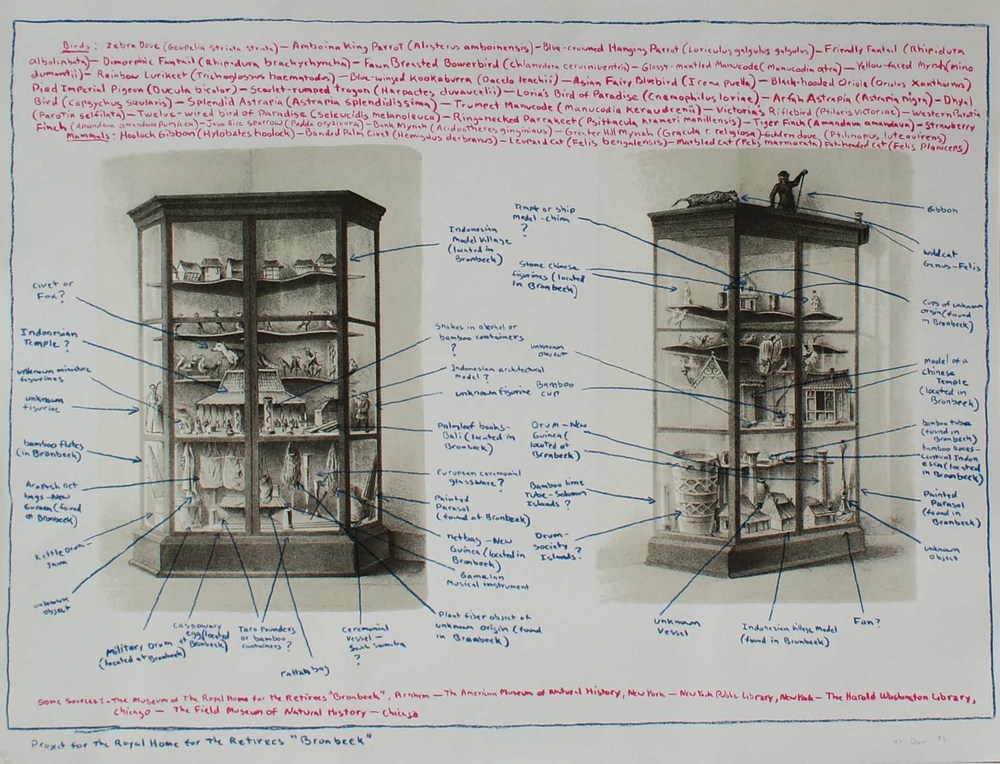 Birds: Zebra Dove (Geopelia striata striata) — Amboina King Parrot (Alisterus amboinensis) — Blue-crowned Hanging Parrot (Loriculus galgulus galgulus) — Friendly Fantail (Rhipidura
albolimbata) — Dimorphic Fantail (Rhipidura brachyrhyncha) — Fawn Breasted Bowerbird (Chlamydera cerviniventris) — Glossy-mantled Manucode (manucodia atra) — Yellow-faced Mynah (mino
dumontii) — Rainbow Lorikeet (Trichoglossus haematodus) — Blue-winged Kookaburra (Dacelo leachii) — Asian Fairy Bluebird (Irena puella) — Black-hooded Oriole (Oriolus Xanthornus)
Pied Imperial Pigeon (Ducula bicolor) — Scarlet-rumped trogon (Harpactes duvaucelii) — Loria's Bird of Paradise (Cnemophilus loriae) — Arfak Astrapia (Astrapia nigra) — Dhyal
Bird (Copsychus saularis) — Splendid Astrapia (Astrapia splendidissima) — Trumpet Manucode (Manucodia Keraudrenii) — Victoria's Riflebird (Ptiloris Victoriae) — Western Parotia
(Parotia sefilata) — Twelve-wired bird of Paradise (Seleucidis melanoleuca) — Ring-necked Parrakeet (Psittacula krameri manillensis) — Tiger Finch (Amandava amandava) — Strawberry
Finch (Amandava amandava Punicea) — Java Rice Sparrow (Padda oryzivora) — Bank Mynah (Acridotheres ginginianus) — Greater Hill Mynah (Gracula r. religiosa) — Golden dove (Ptilinopus luteovirens)
Mammals: Hoolock Gibbon (Hylobates hoolock) — Banded Palm Civet (Hemigalus derbyanus) — Leopard Cat (Felis bengalensis) — Marbled Cat (Felis marmorata) Flat-headed Cat (Felis Planiceps)
Civet or
Fox?
Indonesian
Temple?
unknown miniature
figurines
unknown
figurine
bamboo flutes
(in Bronbeek)
Arapesh net
bags - New
Guinea (found
at Bronbeek)
Kettle Drum -
Java
unknown
object
Military Drum
(located at Bronbeek)
Cassowary
egg (located
at Bronbeek)
Taro Pounders
or bamboo
containers?
rattan bag
Ceremonial
Vessel -
South Sumatra
?
Indonesian
Model Village
(located in
Bronbeek)
Snakes in alcohol or
bamboo containers
?
Indonesian architectural
model?
unknown figurine
Palmleaf books-
Bali (located in
Bronbeek)
European ceremonial
glassware?
Painted
Parasol
(found at Bronbeek)
Netbag - New
Guinea (located in
Bronbeek)
Gamelan
Musical instrument
Plant fiber object of
unknown origin (found
in Bronbeek)
Temple or ship
Model - China
?
Stone Chinese
figurines (located
in Bronbeek)
unknown
object
Bamboo
cup
Drum - New
Guinea (
located at
Bronbeek)
Bamboo lime
Tube - Solomon
Islands?
Drum -
Society
Islands?
unknown
Vessel
Indonesian Village Model
(found in Bronbeek)
Fan?
Gibbon
wildcat
Genus - Felis
Cups of unknown
origin (found
in Bronbeek)
Model of a
Chinese
Temple
(located in
Bronbeek)
bamboo tubes
(found in
Bronbeek)
Central Indon
esia (located
in Bronbeek)
Painted
Parasol
(found in
Bronbeek)
unknown
object
Some Sources: - The Museum of The Royal Home for the Retirees "Bronbeek", Arnhem — The American Museum of Natural History, New York — New York Public Library, New York — The Harold Washington Library,
Chicago — The Field Museum of Natural History — Chicago
Project for The Royal Home for The Retirees "Bronbeek"